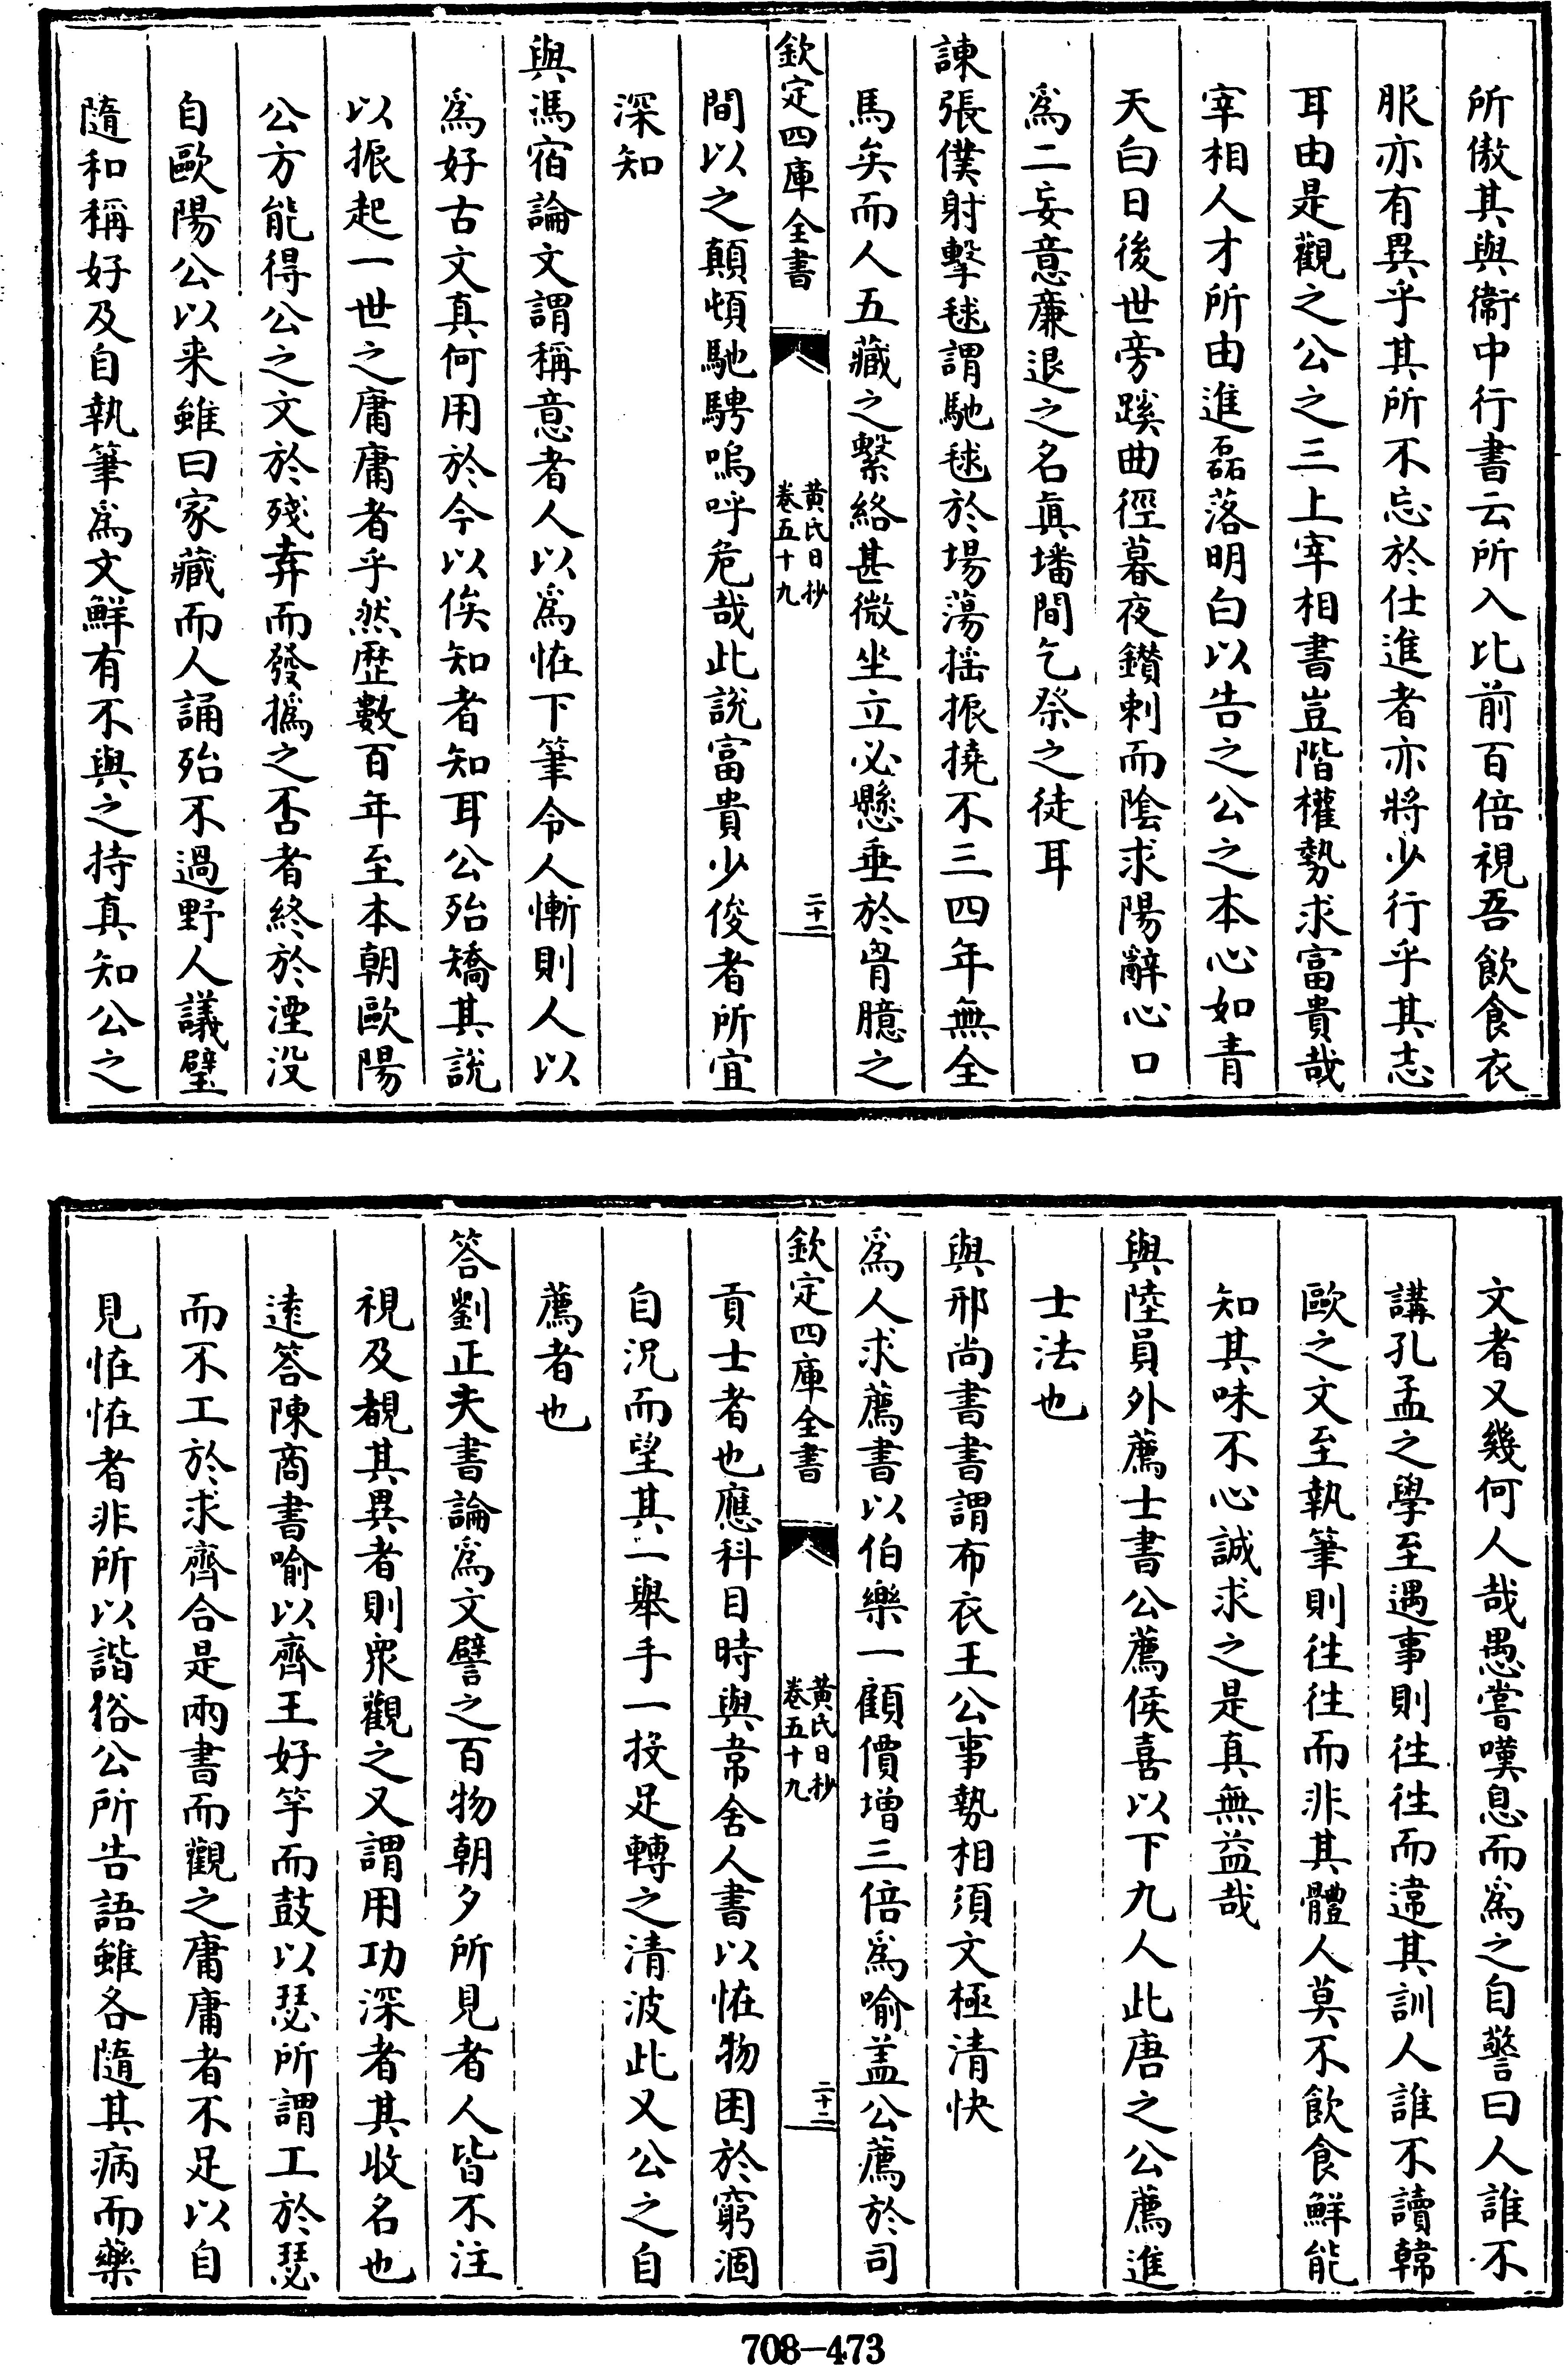 所傲其與衞中行書云所入比前百倍視吾飲食衣
服亦有異乎其所不忘於仕進者亦將少行乎其志
耳由是觀之公之三上宰相書豈階權勢求富貴哉
宰相人才所由進磊落明白以告之公之本心如青
天白日後世旁蹊曲徑暮夜鑚刺而陰求陽辭心口
爲二妄意亷退之名眞墦間乞祭之徒耳
諫張僕射擊毬謂馳毬於場蕩揺振撓不三四年無全
馬矣而人五藏之繫絡甚微坐立必懸垂於胷臆之
欽定四庫全書
黄氏日抄
卷五十九
二十一
間以之顛頓馳騁嗚呼危哉此說富貴少俊者所宜
深知
與馮宿論文謂稱意者人以爲恠下筆令人慚則人以
爲好古文真何用於今以俟知者知耳公殆矯其說
以振起一世之庸庸者乎然歴數百年至本朝歐陽
公方能得公之文於殘弃而發撝之否者終於湮没
自歐陽公以来雖曰家藏而人誦殆不過野人議璧
隨和稱好及自執筆爲文鮮有不與之持真知公之
文者又幾何人哉愚嘗嘆息而爲之自警曰人誰不
講孔孟之學至遇事則徃徃而違其訓人誰不讀韓
歐之文至執筆則徃徃而非其體人莫不飲食鮮能
知其味不心誠求之是真無益哉
與陸員外薦士書公薦侯喜以下九人此唐之公薦進
士法也
與邢尚書書謂布衣王公事勢相須文極清快
爲人求薦書以伯樂一顧價增三倍爲喻盖公薦於司
欽定四庫全書
黄氏日抄
卷五十九
二十二
貢士者也應科目時與常舍人書以恠物困於窮涸
自况而望其一舉手一投足轉之清波此又公之自
薦者也
答劉正夫書論爲文譬之百物朝夕所見者人皆不注
視及覩其異者則衆觀之又謂用功深者其收名也
逺答陳商書喻以齊王好竽而鼓以瑟所謂工於瑟
而不工於求齊合是兩書而觀之庸庸者不足以自
見恠恠者非所以諧俗公所告語雖各隨其病而藥
708—473